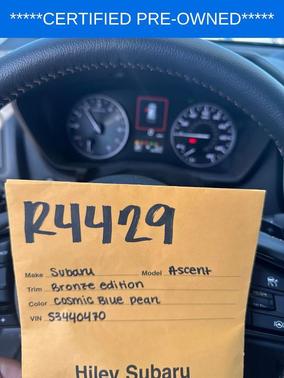 *****CERTIFIED PRE-OWNED*****
R4429
Make Subaru Model Ascent
Trim Bronze edition
Color cosmic Blue pearl
VIN S3440470
Hiley Subaru